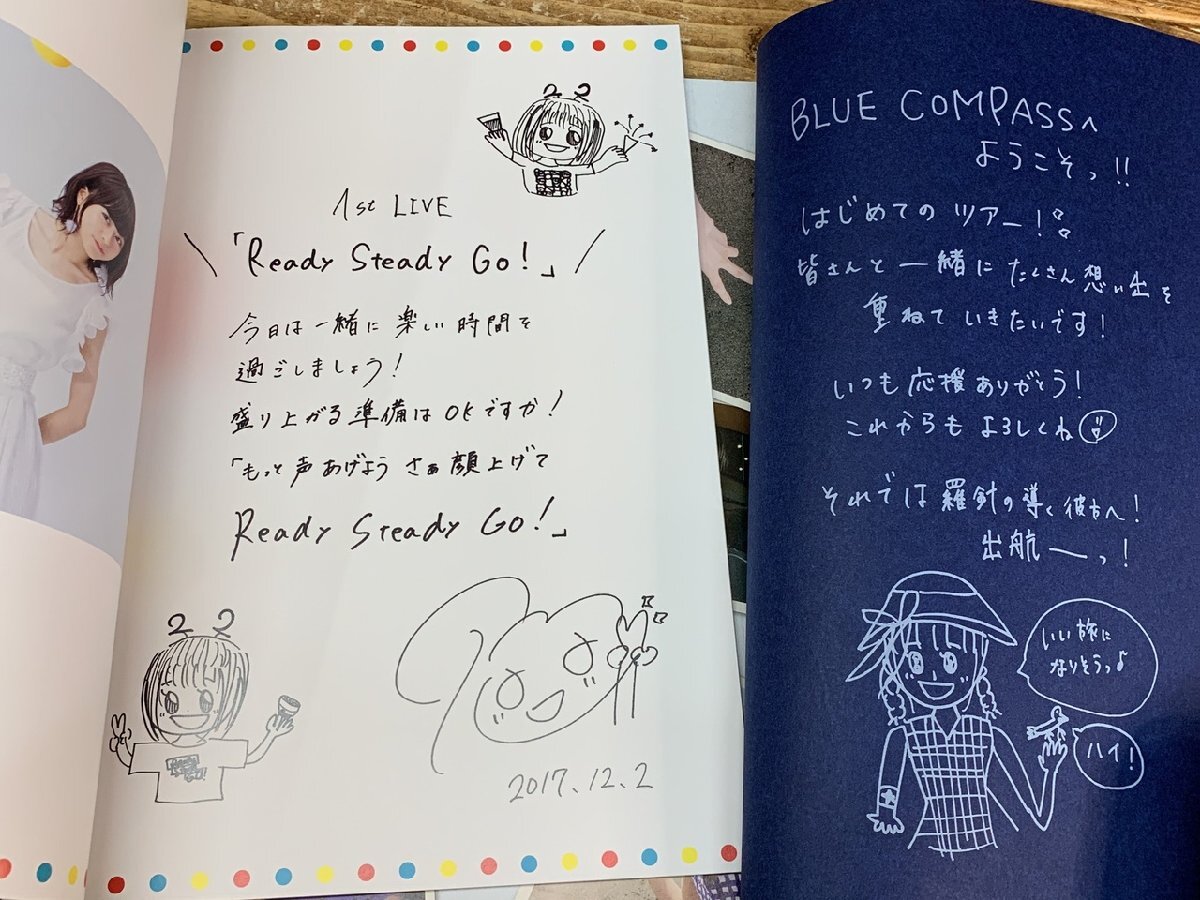 1st LIVE
「Ready Steady Go!」
今日は一緒に楽しい時間を
過ごしましょう!
盛り上がる準備はOKですか!
「もっと声あげよう さぁ顔上げて
Ready Steady Go!」
2017.12.2
BLUE COMPASSへ
ようこそっ!!
はじめての ツアー!
皆さんと一緒にたくさん想い出を
重ねていきたいです!
いつも応援ありがとう!
これからもよろしくね
それでは羅針の導く彼方へ!
出航ーっ!
いい旅に
なりそうっ♪
ハイ!